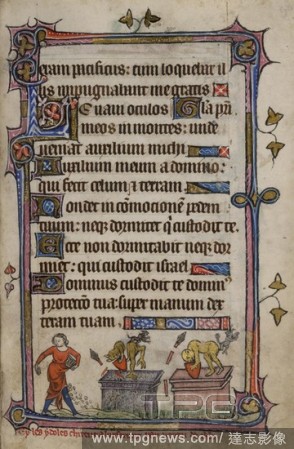 eram pacificus: cum loquebar il
lis impugnabant me gratis
Levavi oculos Gla pri
meos in montes: unde
veniat auxilium michi
Auxilium meum a domino:
qui fecit celum & terram
Non det in cōmotionē pedem
tuum: neqz dormitet q̄ custodit te
Ecce non dormitabit neqz dor
miet: qui custodit israel
Dominus custodit te domin
protectio tua: super manum dex
teram tuam
TPG
www.tpgnews.com / 達志影像